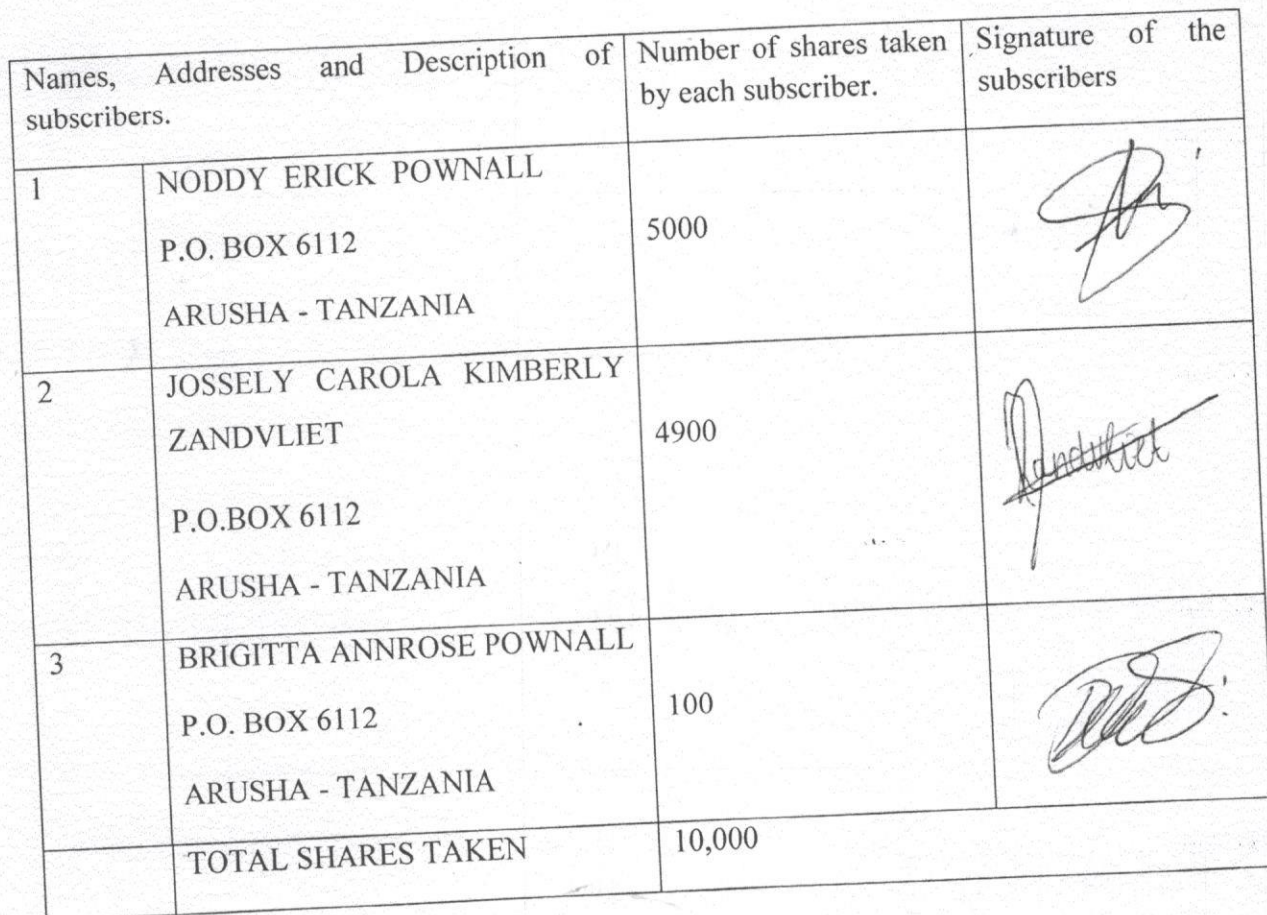 Names, Addresses and Description of
subscribers.
Number of shares taken
by each subscriber.
Signature of the
subscribers
1
NODDY ERICK POWNALL
P.O. BOX 6112
ARUSHA - TANZANIA
5000
2
JOSSELY CAROLA KIMBERLY
ZANDVLIET
P.O.BOX 6112
ARUSHA - TANZANIA
4900
Zandvliet
3
BRIGITTA ANNROSE POWNALL
P.O. BOX 6112
ARUSHA - TANZANIA
100
TOTAL SHARES TAKEN
10,000